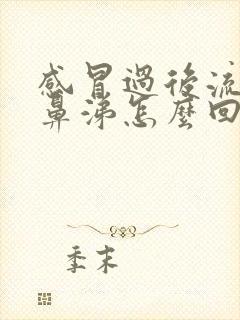 感冒過後流
鼻涕怎麼回
季末